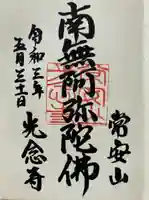 常安山
南無阿弥陀佛
光念寺
令和三年
五月三十一日